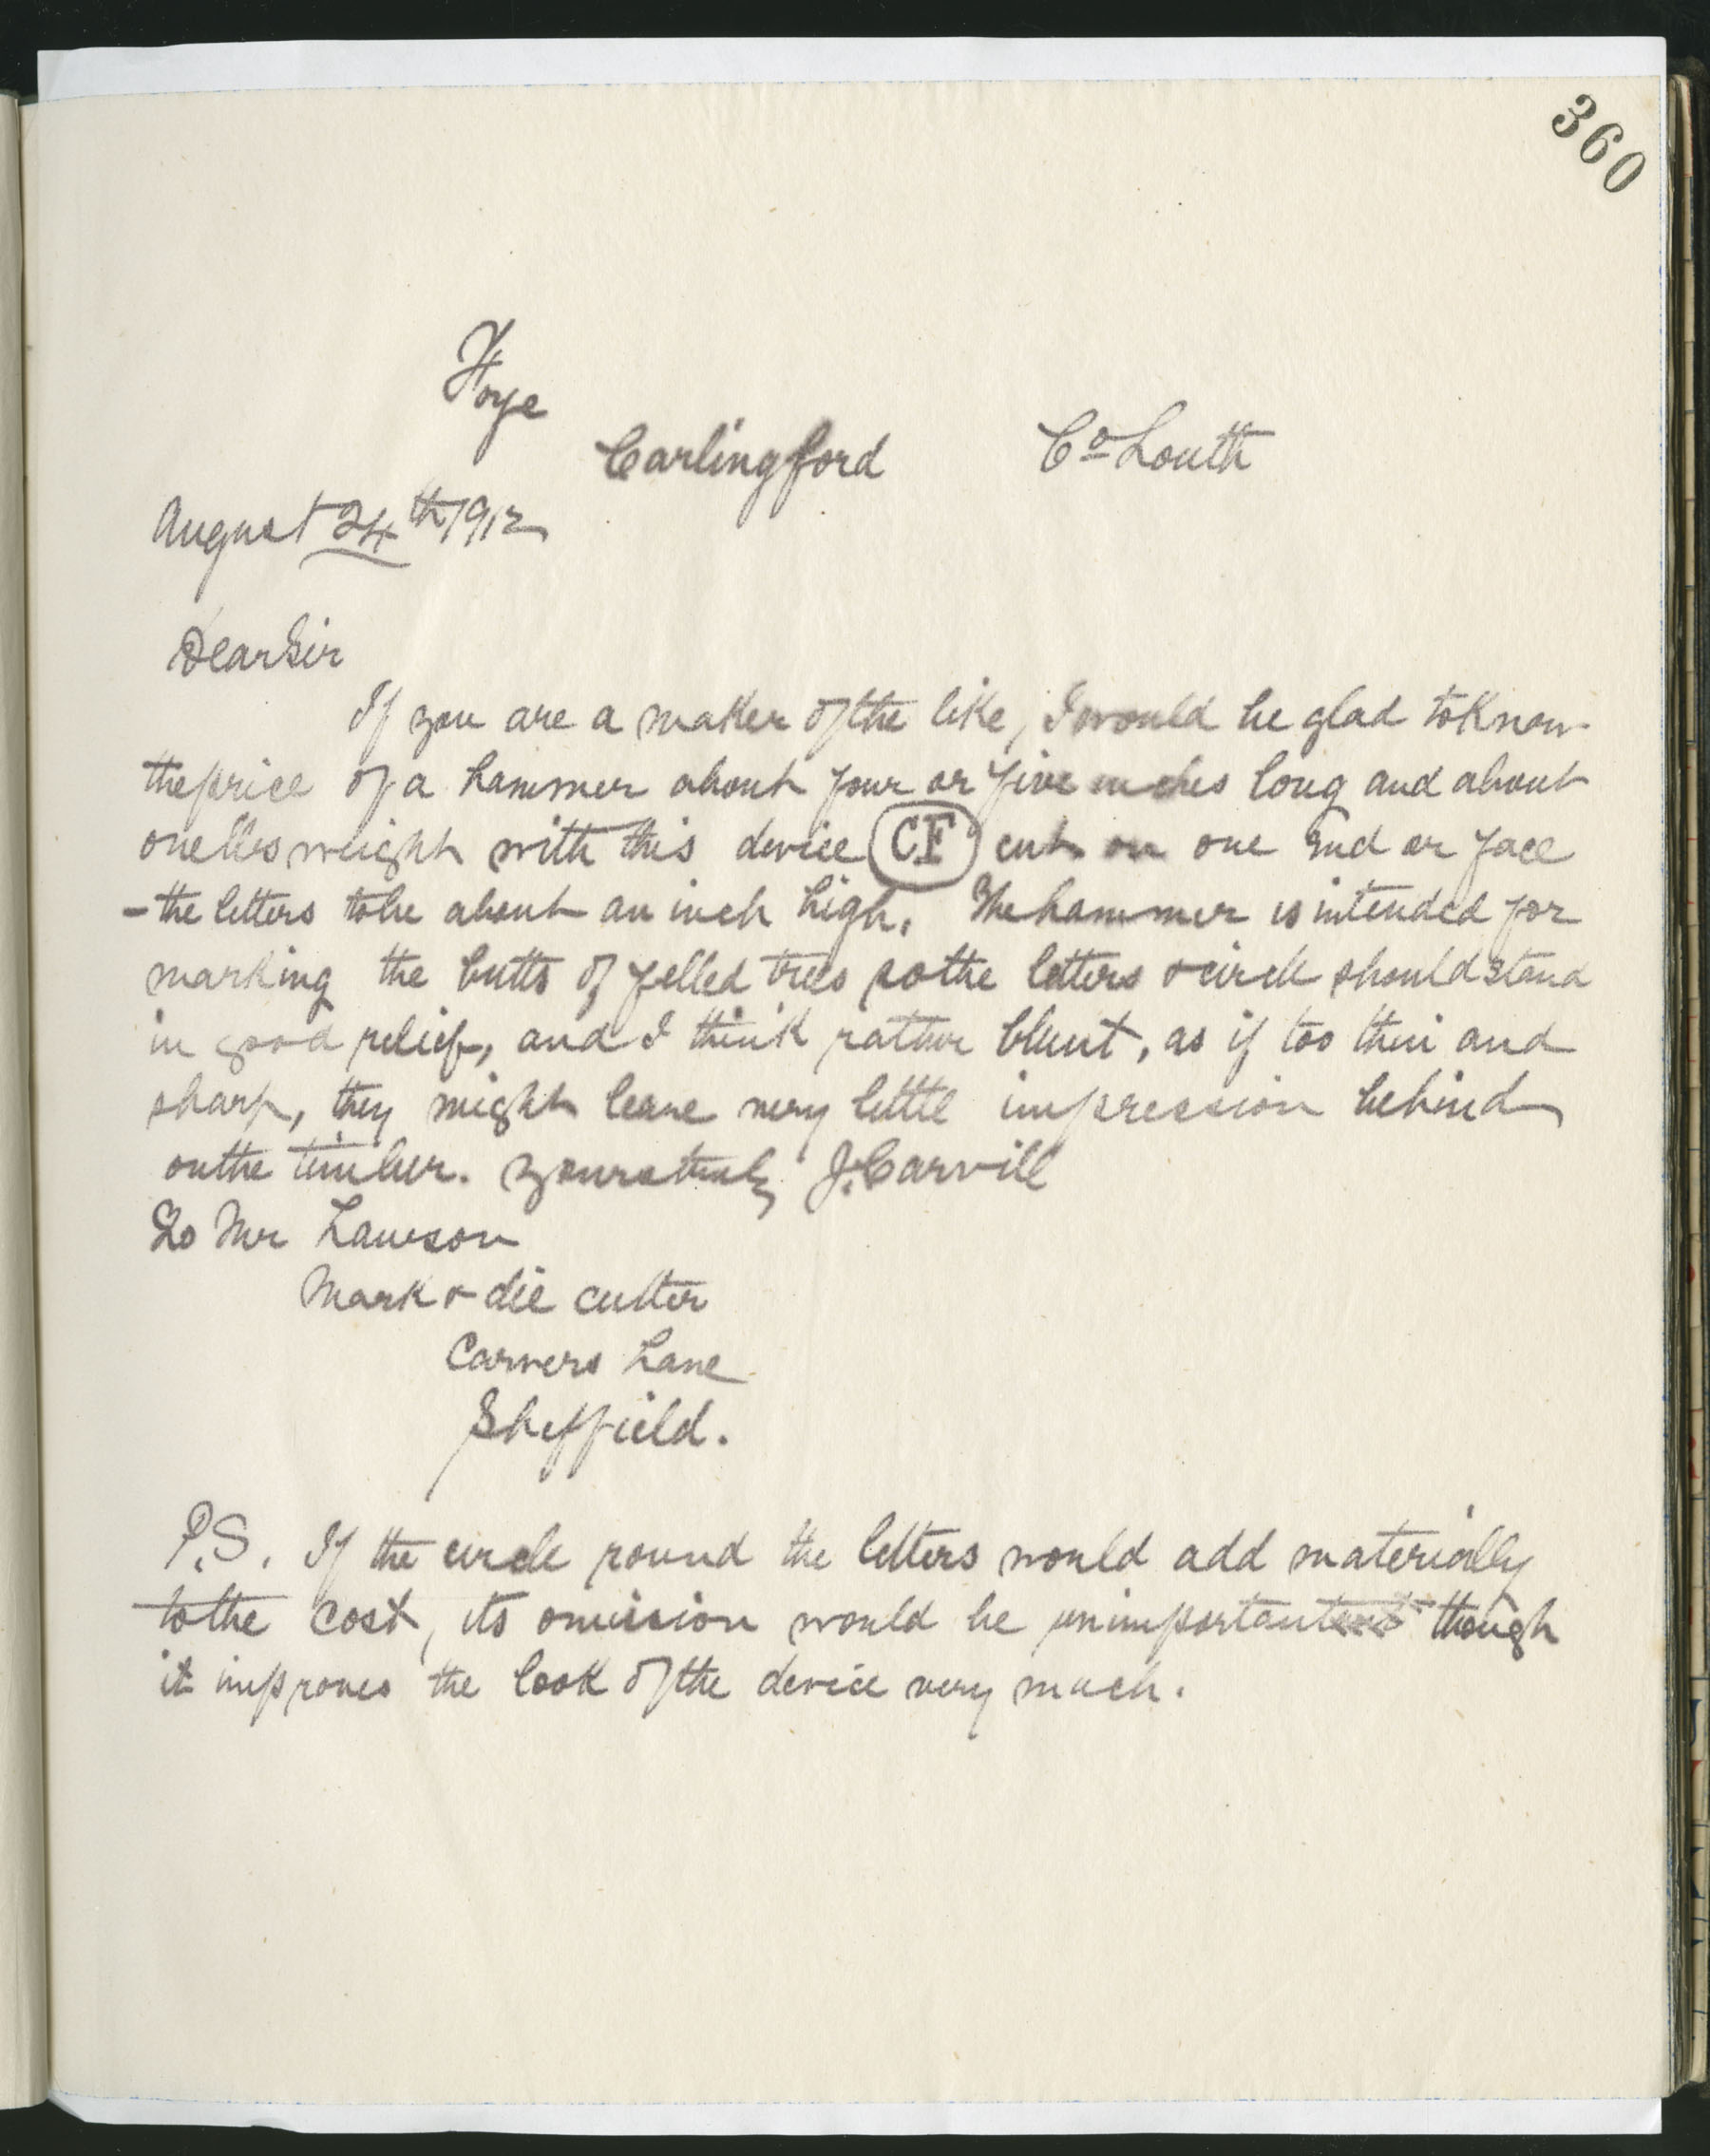 360
Foye
Carlingford Co Louth
August 24th 1912
Dear Sir
If you are a maker of the like, I would be glad to know
the price of a hammer about four or five inches long and about
one lbs weight with this device CF cut on one End or face
- the letters to be about an inch high. The hammer is intended for
marking the butts of felled trees so the letters & circle should stand
in good relief, and I think rather blunt, as if too thin and
sharp, they might leave very little impression behind
on the timber. Yours truly J. Carvill
To Mr Lawson
Mark & die cutter
Carvers Lane
Sheffield.
P.S. If the circle round the letters would add materially
to the cost, its omission would be unimportant though
it improves the look of the device very much.